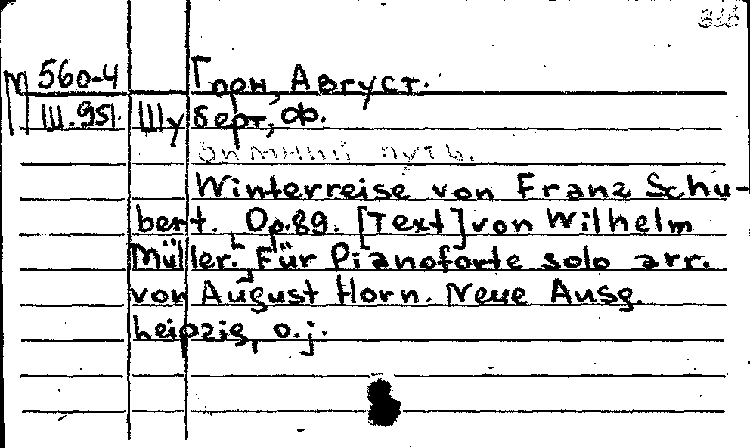 М 560-4
Горн, Август.
Ш.951. Шуберт, Ф.
Зимний путь.
Winterreise von Franz Schu-
bert. Op. 89. [Text] von Wilhelm
Müller. Für Pianoforte solo arr.
von August Horn. Neue Ausg.
Leipzig, o. j.